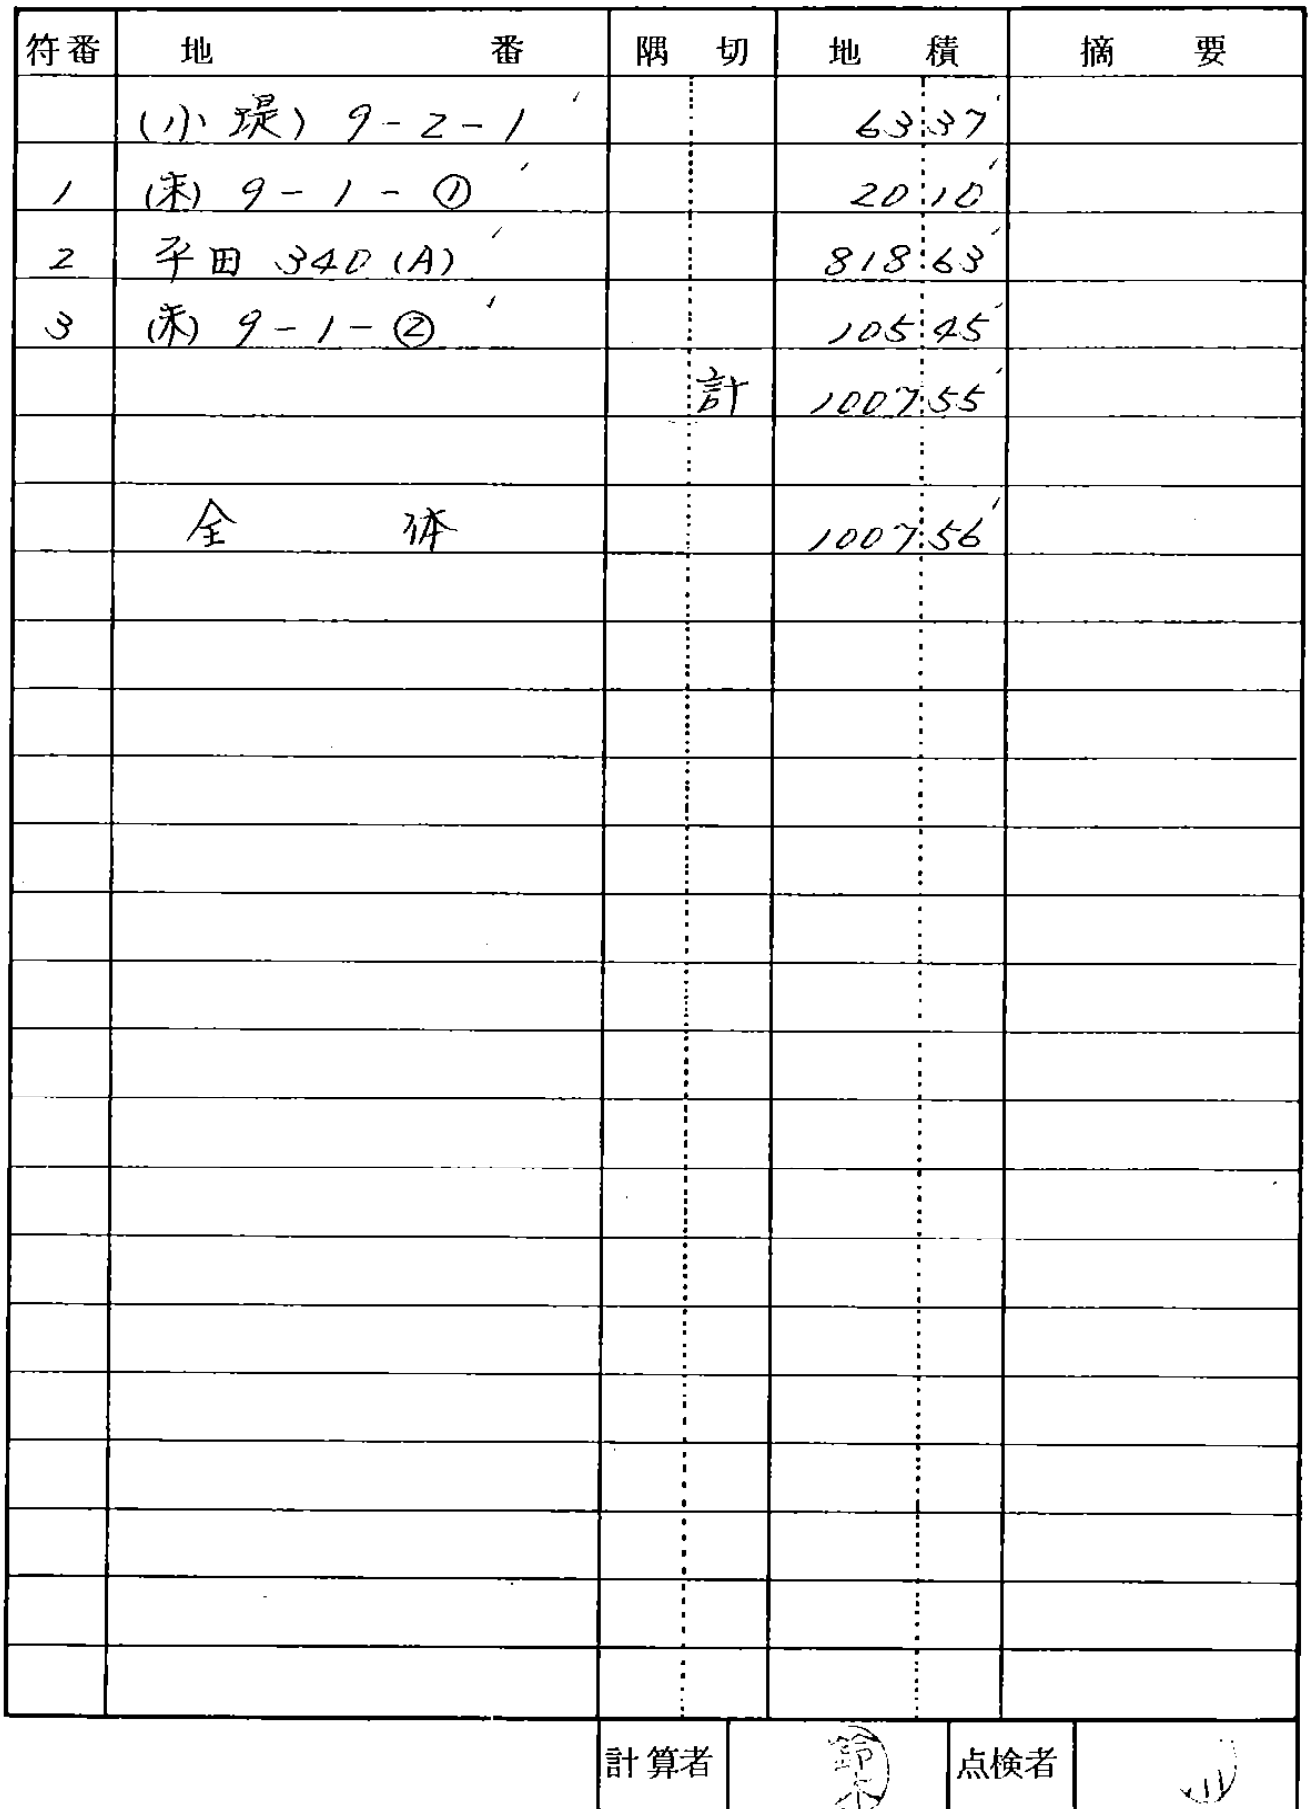 符番 地 番 隅 切 地 積 摘 要
(小堤) 9-2-1 63 37
1 (末) 9-1-① 20 10
2 平田 340 (A) 818 63
3 (末) 9-1-② 105 45
計 1007 55
全 体 1007 56
計算者 鈴木 点検者